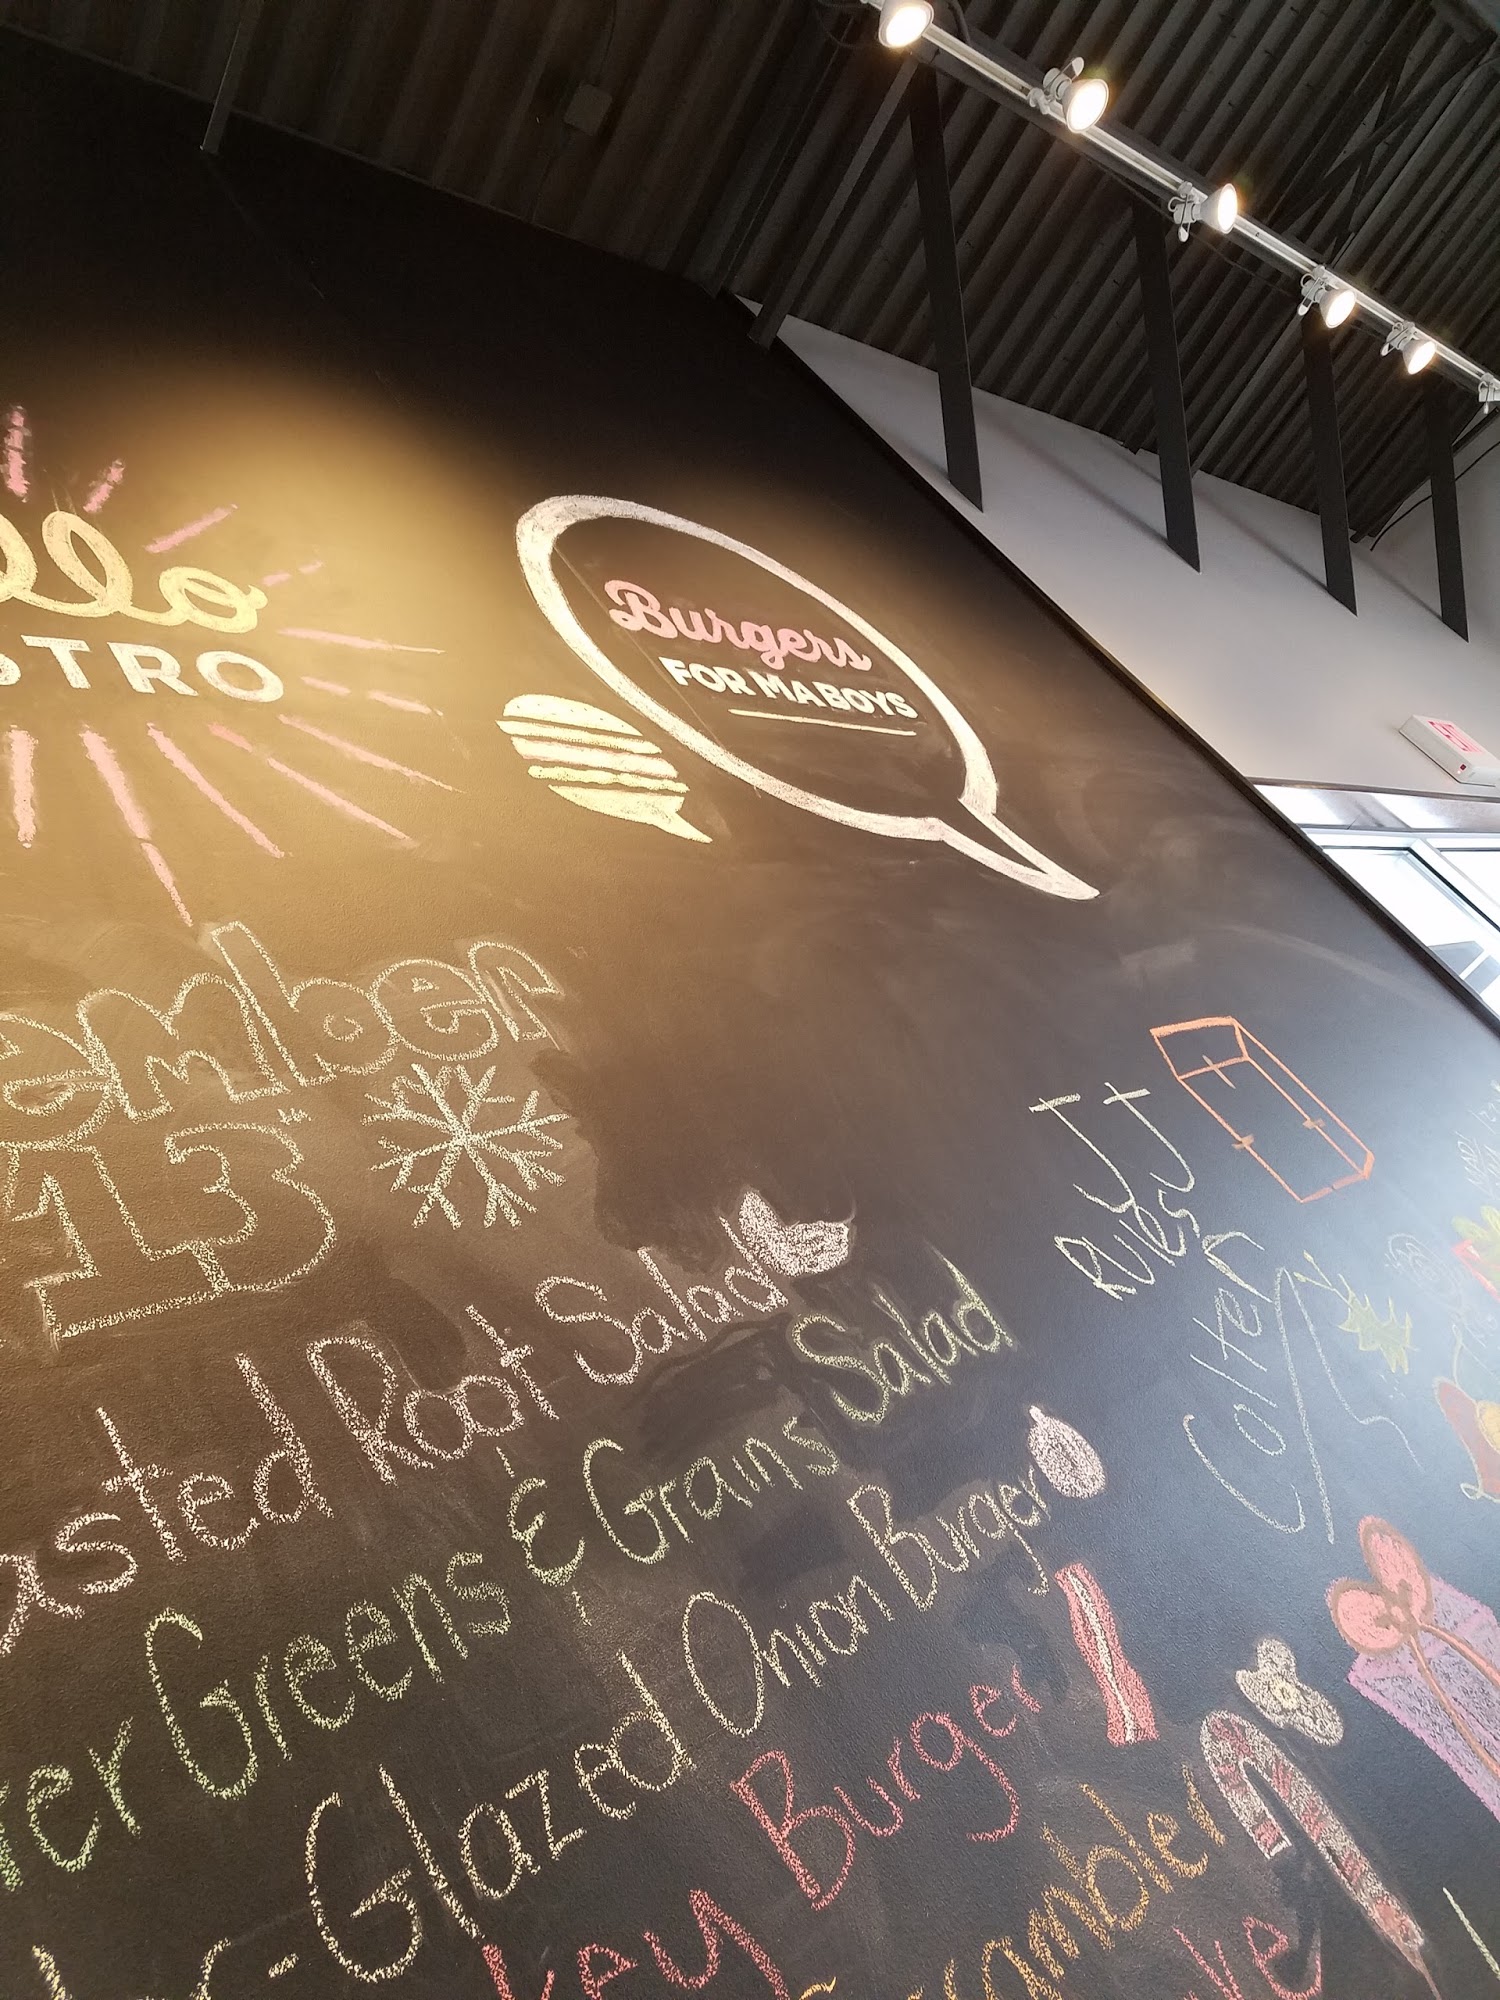 llo
STRO
Burgers
FOR MA BOYS
ember
13
asted Root Salad
er Greens & Grains Salad
-Glazed Onion Burger
key Burger
crambler
ke
JJ
Rules
Colter
EXIT